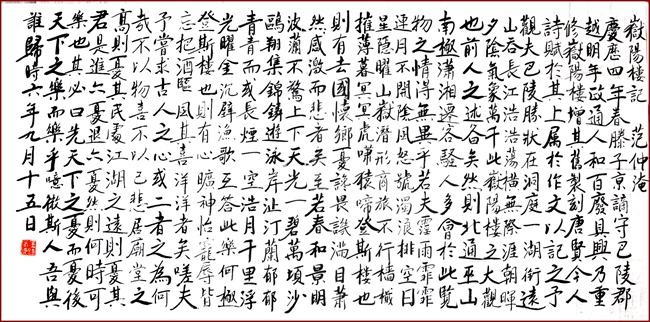 嶽陽樓記 范仲淹
慶應四年春滕子京謫守巴陵郡
越明年政通人和百廢具興乃重
修嶽陽樓增其舊制刻唐賢今人
詩賦於其上属於作文以記之予
觀夫巴陵勝狀在洞庭一湖銜遠
山吞長江浩浩蕩橫無際涯朝暉
夕陰氣象萬千此嶽陽樓之大觀
也前人之述备矣然則北通巫山
南極瀟湘遷客騷人多會於此覽
物之情得無異乎若夫霪雨霏霏
連月不開陰風怒號濁浪排空日
星隱曜山嶽潛形商旅不行檣檝
摧薄暮冥冥虎嘯猿啼登斯樓也
則有去國懷鄉憂讒畏譏滿目蕭
然感激而悲者矣至若春和景明
波瀾不驚上下天光一碧萬頃沙
鷗翔集錦鱗遊泳岸芷汀蘭郁郁
青青而或長煙一空浩月千里浮
光曜金沉璧漁歌互答此樂何極
登斯樓也則有心曠神怡寵辱皆
忘把酒臨風其喜洋洋者矣嗟夫
予嘗求古人之心或二者之為何
哉不以物喜不以己悲居廟堂之
高則憂其民處江湖之遠則憂其
君是進亦憂退亦憂然則何時可
樂也其必曰先天下之憂而憂後
天下之樂而樂乎噫微斯人吾與
誰歸時六年九月十五日